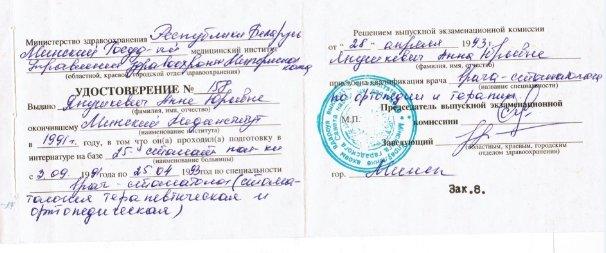 Министерство здравоохранения Республики Беларусь
Минский Госуд-ый медицинский институт
Управление здравоохранения
(областной, краевой, городской отдел здравоохранения)
УДОСТОВЕРЕНИЕ №
Выдано Янушкевич Анне Юрьевне
(фамилия, имя, отчество)
окончившему Минский Мединститут
(наименование института)
в 1991 г. году, в том что он(а) проходил(а) подготовку в
интернатуре на базе
(наименование больницы)
по 25 04 по специальности
врач-стоматолог (стома-
тология терапевтическая и
ортопедическая)
Решением выпускной экзаменационной комиссии
от "28" апреля 1993 г.
Янушкевич Анна Юрьевна
(фамилия, имя, отчество)
присвоена квалификация врача врача-стоматолога
по ортопедии и терапии
Председатель выпускной экзаменационной
комиссии
М.П.
Заведующий
(областным, краевым, городским
отделом здравоохранения)
гор. Минск
Зак.8.